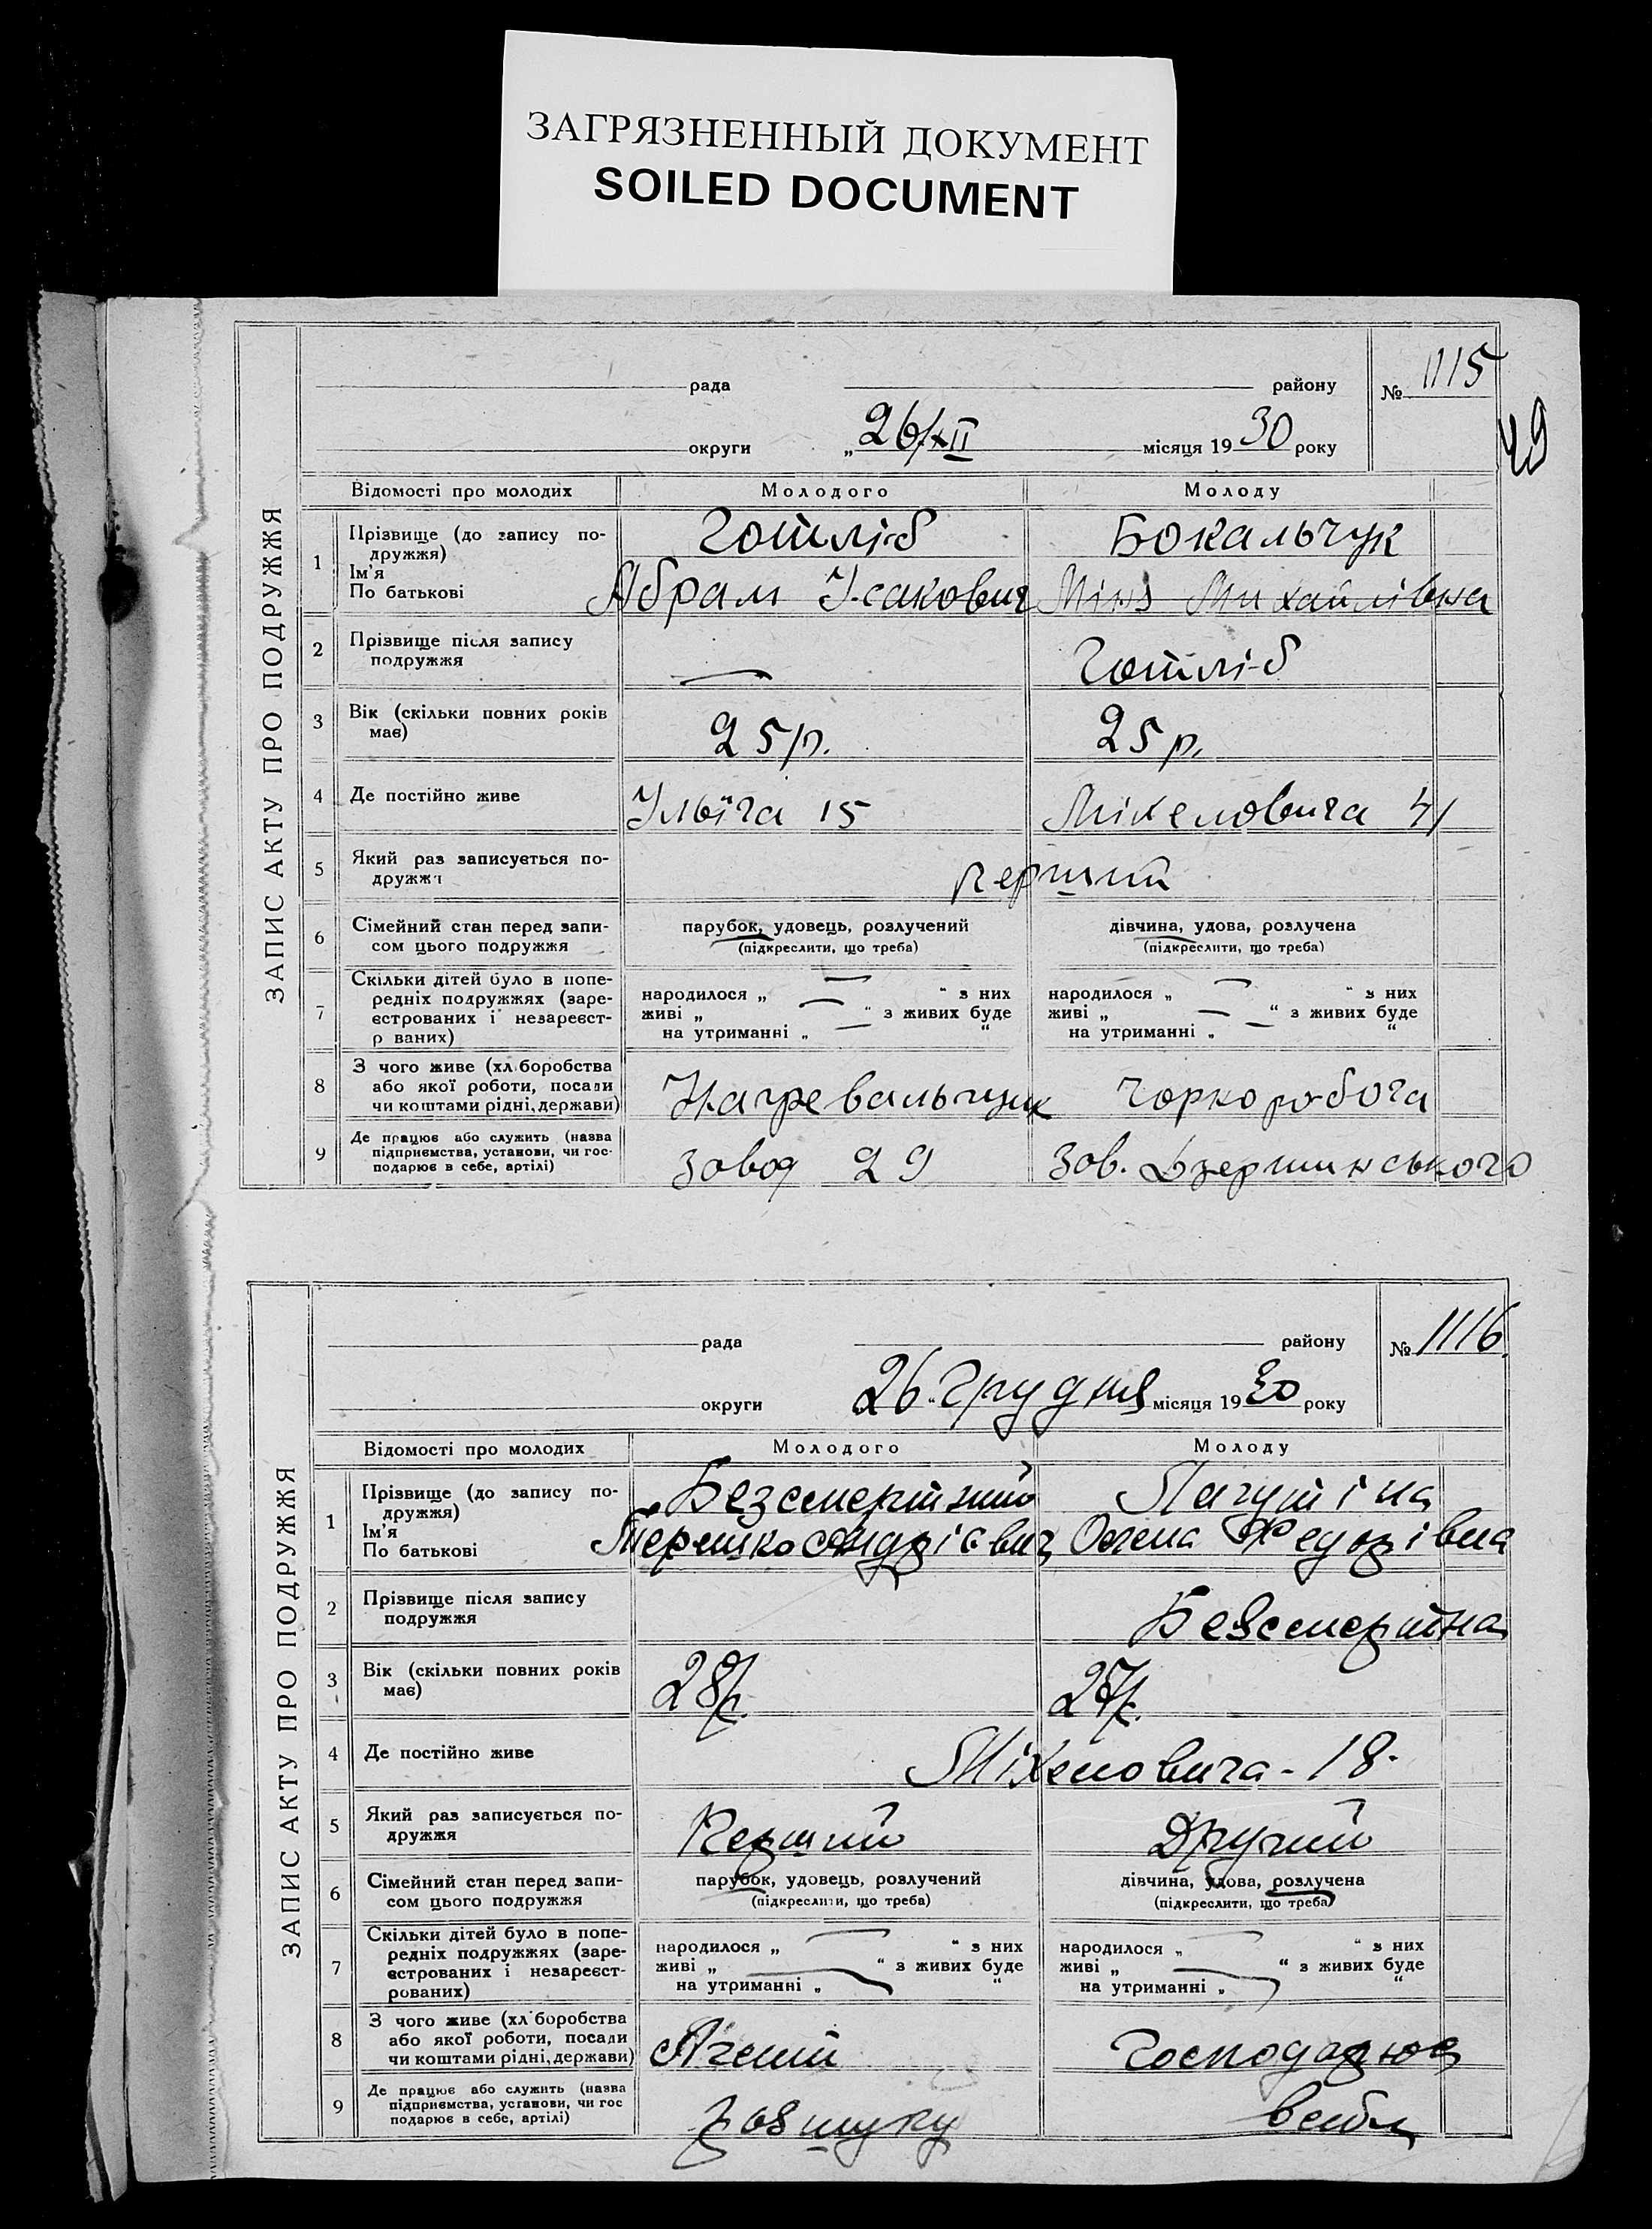 ЗАГРЯЗНЕННЫЙ ДОКУМЕНТ
SOILED DOCUMENT
ЗАПИС АКТУ ПРО ПОДРУЖЖЯ
рада району № 1115
49
округи „26/XII місяця 1930 року
Відомості про молодих Молодого Молоду
1 Прізвище (до запису по-
дружжя) Готліб Бокальчук
Ім'я
По батькові Абрам Ісакович Міня Михайлівна
2 Прізвище після запису
подружжя — Готліб
3 Вік (скільки повних років
має) 25 р. 25 р.
4 Де постійно живе Ільїча 15 Міхеловича 41
5 Який раз записується по-
дружжя перший
6 Сімейний стан перед запи-
сом цього подружжя
парубок, удовець, розлучений дівчина, удова, розлучена
(підкреслити, що треба) (підкреслити, що треба)
7 Скільки дітей було в попе-
редніх подружжях (заре-
єстрованих і незареєст-
р ваних)
народилося „ — “ з них народилося „ — “ з них
живі „ — “ з живих буде живі „ — “ з живих буде
на утриманні „ — “ на утриманні „ — “
8 З чого живе (хл боробства
або якої роботи, посади
чи коштами рідні, держави) Нагревальщик Чорноробоча
9 Де працює або служить (назва
підприємства, установи, чи гос-
подарює в себе, артілі) Завод 29 Зав. Дзержинського
ЗАПИС АКТУ ПРО ПОДРУЖЖЯ
рада району № 1116.
округи 26 Грудня місяця 1930 року
Відомості про молодих Молодого Молоду
1 Прізвище (до запису по-
дружжя) Безсмертний Лагутіна
Ім'я
По батькові Терешко Андрієвич Олена Федорівна
2 Прізвище після запису
подружжя Безсмертна
3 Вік (скільки повних років
має) 28 р. 27 р.
4 Де постійно живе Міхеловича - 18.
5 Який раз записується по-
дружжя Перший Другий
6 Сімейний стан перед запи-
сом цього подружжя
парубок, удовець, розлучений дівчина, удова, розлучена
(підкреслити, що треба) (підкреслити, що треба)
7 Скільки дітей було в попе-
редніх подружжях (заре-
єстрованих і незареєст-
рованих)
народилося „ — “ з них народилося „ — “ з них
живі „ — “ з живих буде живі „ — “ з живих буде
на утриманні „ “ на утриманні „ “
8 З чого живе (хл боробства
або якої роботи, посади
чи коштами рідні, держави) Агент Господарює
9 Де працює або служить (назва
підприємства, установи, чи гос
подарює в себе, артілі) в себе